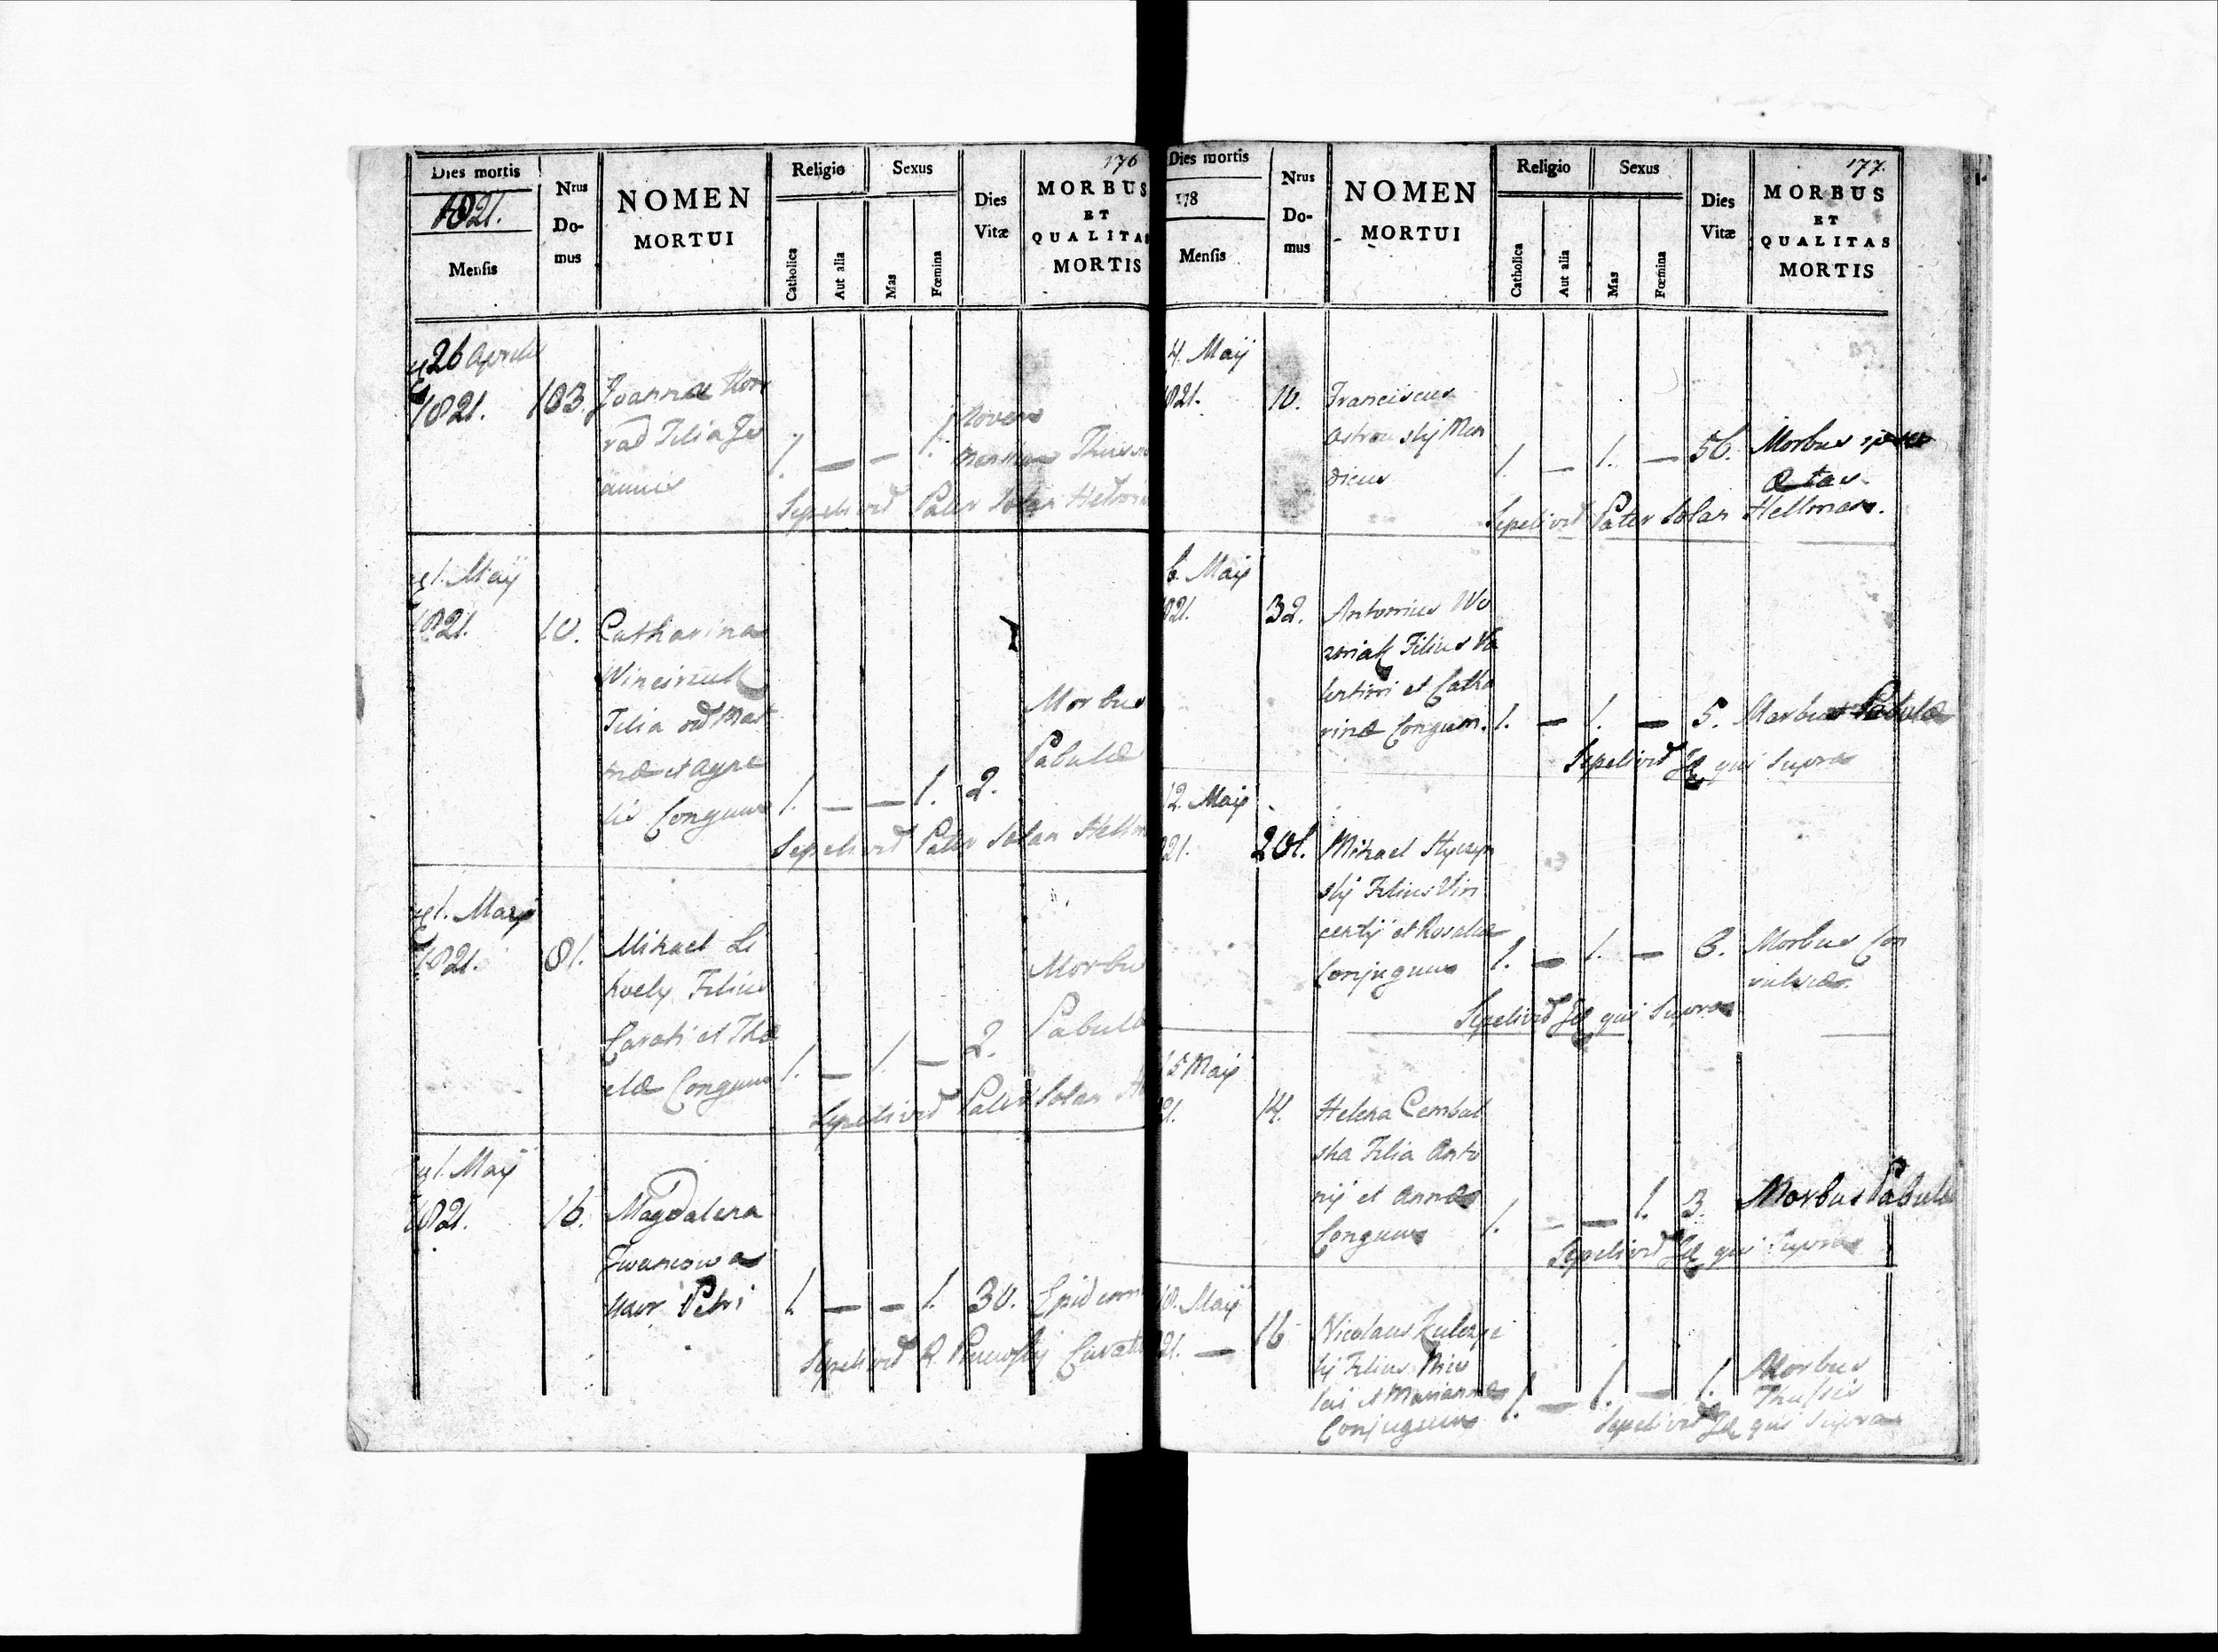 176
Dies mortis
1821.
Mensis
Nrus
Do-
mus
NOMEN
MORTUI
Religio
Catholica
Aut alia
Sexus
Mas
Fœmina
Dies
Vitæ
MORBUS
ET
QUALITAS
MORTIS
26 Aprilis
1821. 103. Joanna Kon
rad Filia Jo
annis
1. — — 1. Novem
Sepelivit Pater Solan Hellman
1. Maij
1821. 10. Catharina
Filia
et Agne
tis Conguum 1. — — 1. 2.
Morbus
Pabulæ
Sepelivit Pater Solan Hellm
1. Maij
1821. 81. Mihael Li
Filius
et The
clæ Conguum 1. — 1. — 2.
Morbu
Pabulæ
Sepelivit Pater Solan
1. Maij
1821. 16. Magdalena
Iwanowa
Uxor Petri 1. — — 1. 30. Epidem
Sepelivit R.
177.
Dies mortis
178
Mensis
Nrus
Do-
mus
NOMEN
MORTUI
Religio
Catholica
Aut alia
Sexus
Mas
Fœmina
Dies
Vitæ
MORBUS
ET
QUALITAS
MORTIS
4. Maij
821. 10. Franciscus
Ostrowskij Men
dicus 1. — 1. — 56. Morbus
Sepelivit Pater Solan Hellman.
6. Maij
821. 32. Antonius Wo
zniak Filius Va
lentini et Catha
rinæ Conguum. 1. — 1. — 5. Morbus Pabulæ
Sepelivit Id qui Supra
12. Maij
21. 201. Mihael Styczyn
skij Filius Vin
centij et Rosaliæ
Conjuguum 1. — 1. — 6. Morbus Con
vulsiæ
Sepelivit Id qui Supra
15 Maij
21. 14. Helena Cembal
ska Filia Anto
nij et Annæ
Conguum 1. — — 1. 3. Morbus Pabulæ
Sepelivit Id qui Supra
18. Maij
21. — 16 Nicolaus Kulczyc
kij Filius Nico
lai et Mariannæ
Conjuguum 1. — 1. — 1. Morbus
Thussis
Sepelivit Id qui Supra